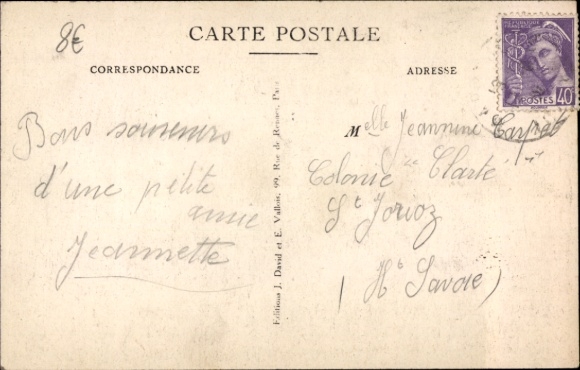 8€
CARTE POSTALE
CORRESPONDANCE
ADRESSE
REPUBLIQUE FRANÇAISE
POSTES 40
Bons souvenirs
d'une petite
amie
Jeannette
Editions J. David et E. Vallois, 99, Rue de Rennes, Paris
Melle Jeannine
Colonie Clarté
St Jorioz
(Hte Savoie)